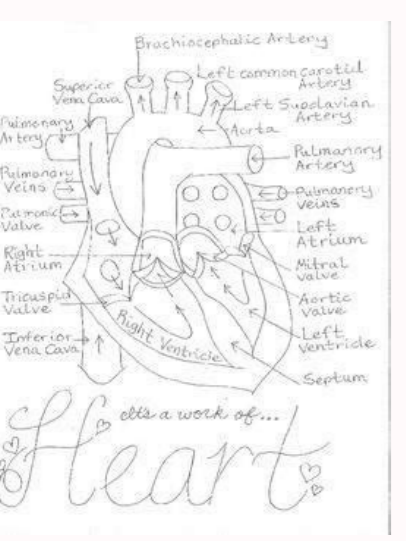 Brachiocephalic Artery
Left common carotid
Artery
Superior
Vena Cava
Left Subclavian
Artery
Pulmonary
Artery
Aorta
Pulmonary
Artery
Pulmonary
Veins
Pulmonary
Veins
Pulmonic
Valve
Left
Atrium
Right
Atrium
Mitral
valve
Tricuspid
Valve
Aortic
valve
Right Ventricle
Inferior
Vena Cava
Left
Ventricle
Septum
It's a work of...
Heart